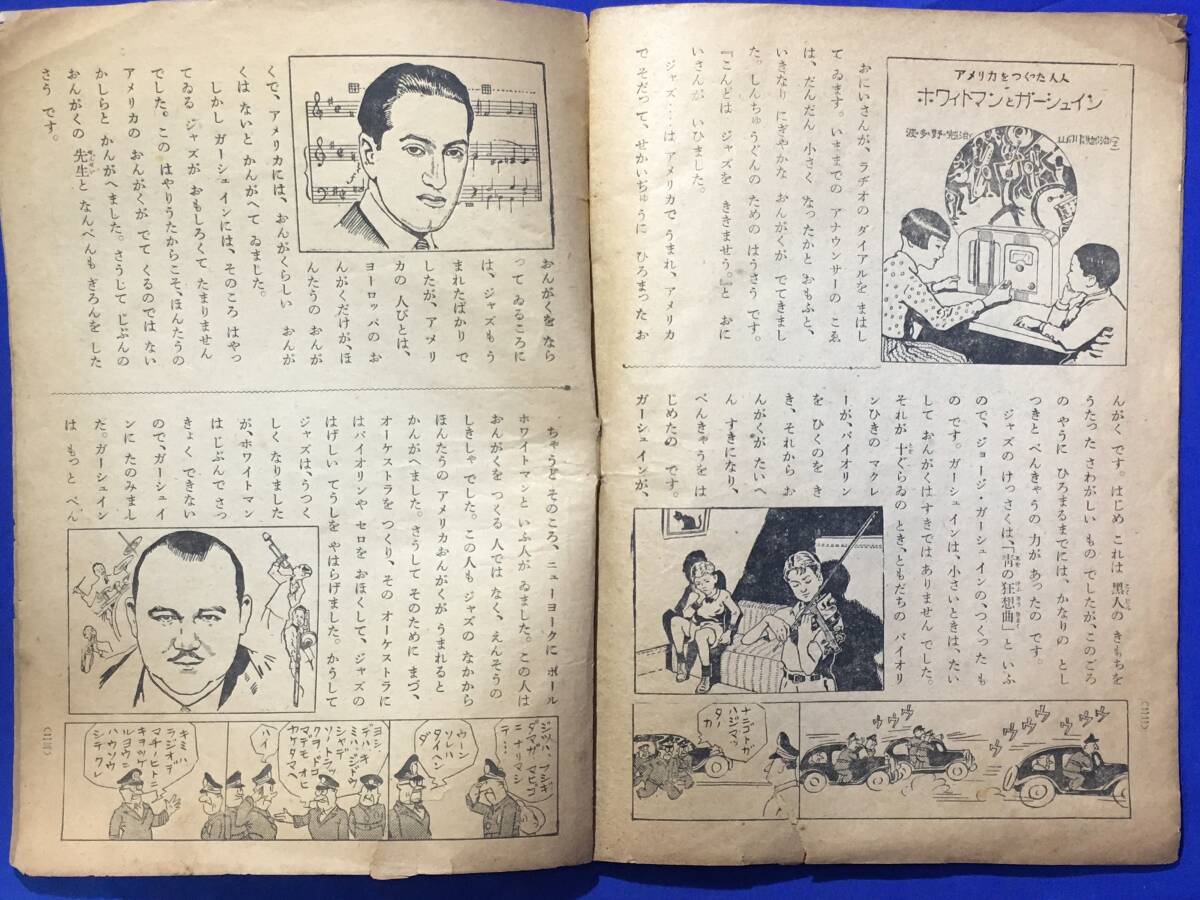 アメリカをつくった人人
ホワイトマンとガーシュイン
おにいさんが、ラヂオの ダイアルを まはし
て ゐます。いままでの アナウンサーの こゑ
は、だんだん 小さく なったかと おもふと、
いきなり にぎやかな おんがくが でてきまし
た。しんちゅうぐんの ための はうさう です。
『こんどは ジャズを ききませう。』と おに
いさんが いひました。
ジャズ…は アメリカで うまれ、アメリカ
で そだって、せかいぢゅうに ひろまった お
んがく です。はじめ これは 黒人の きもちを
うたった さわがしい もの でしたが、このごろ
の やうに ひろまるまでには、かなりの とし
つきと べんきゃうの 力が あったの です。
ジャズの けっさくは、「青の狂想曲」と いふ
ので、ジョージ・ガーシュインの、つくった も
の です。ガーシュインは、小さいときは、たい
して おんがくは すきでは ありません でした。
それが 十ぐらゐの とき、ともだちの バイオリ
ンひきの マクレ
ーが、バイオリン
を ひくのを き
き、それから お
んがくが たいへ
ん すきになり、
べんきゃうを は
じめたの です。
ガーシュインが、
おんがくを なら
って ゐるころに
は、ジャズも う
まれたばかり で
したが、アメリ
カの 人びとは、
ヨーロッパの お
んがくだけが、ほ
んたうの おんが
くで、アメリカには、おんがくらしい おんが
くは ないと かんがへて ゐました。
しかし ガーシュインには、そのころ はやっ
てゐる ジャズが おもしろくて たまりません
でした。この はやりうたからこそ、ほんたうの
アメリカの おんがくが でて くるのでは ない
かしらと かんがへました。さうして じぶんの
おんがくの 先生と なんべんも ぎろんを した
さう です。
ちゃうど そのころ、ニューヨークに ポール
ホワイトマンと いふ 人が ゐました。この 人は
おんがくを つくる 人では なく、えんそうの
しきしゃ でした。この 人も ジャズの なかから
ほんたうの アメリカおんがくが うまれると
かんがへました。さうして そのために まづ、
オーケストラを つくり、その オーケストラに
は バイオリンや セロを おほくして、ジャズの
はげしい てうしを やはらげました。かうして
ジャズは、うつく
しく なりました
が、ホワイトマン
は じぶんで さっ
きょく できない
ので、ガーシュイ
ンに たのみまし
た。ガーシュイン
は もっと べん
ウウ
ウウ
ウウ
ナニゴトガ
ハジマッ
タカ
ジツハ、フシギ
ダマガ マヒゴ
ニ ナリマシ
テ……
ウーン
ソレハ
タイヘン
ダ
ヨシ、
デハ、キ
ミハ、ジドウ
シャデ
ソノトラッ
クヲ ドコ
マデモ オヒ
カケタマヘ
ハイ
キミ ハ
ラジオデ
マチノヒトニ
キヲツケ
ルヨウニ
ハウソウ
シテクレ